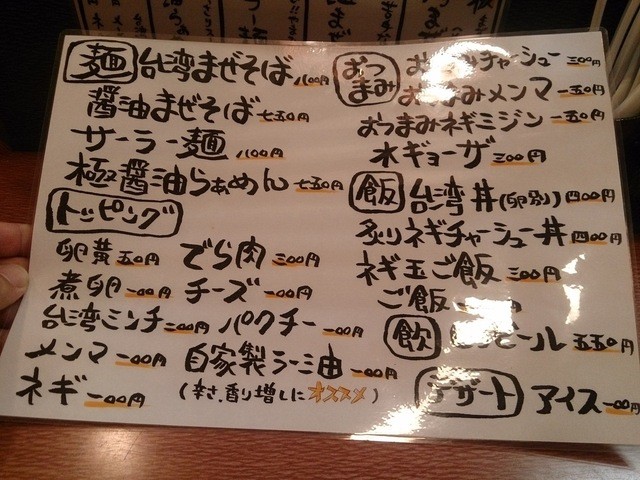 麺 台湾まぜそば
醤油まぜそば 七五〇円
サーラー麺
極醤油らぁめん 七五〇円
トッピング
卵黄 五〇円 でら肉 三〇〇円
煮卵 一〇〇円 チーズ 一〇〇円
台湾ミンチ 二〇〇円 パクチー 一〇〇円
メンマ 一〇〇円 自家製ラー油 一〇〇円
ネギ 一〇〇円 (辛さ、香り増しにオススメ)
おつまみ チャーシュー 三〇〇円
おつまみメンマ 一五〇円
おつまみネギミジン 一五〇円
水ギョーザ 三〇〇円
飯 台湾丼(卵別) 四〇〇円
炙りネギチャーシュー丼 四〇〇円
ネギ玉ご飯 三〇〇円
ご飯
飲 ビール 五五〇円
デザート アイス 一〇〇円